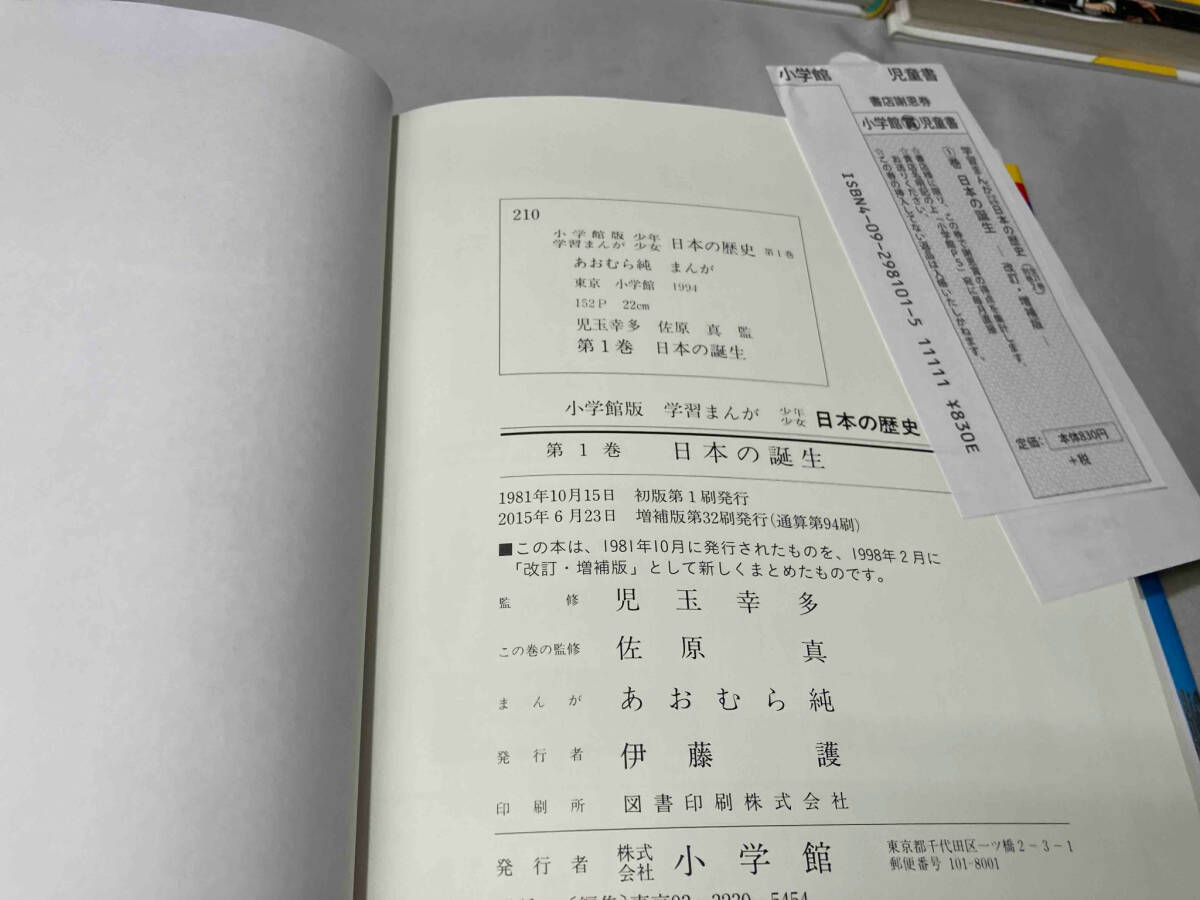 210
小学館版 少年
学習まんが 少女 日本の歴史 第1巻
あおむら純 まんが
東京 小学館 1994
152P 22cm
児玉幸多 佐原 真 監
第1巻 日本の誕生
小学館版 学習まんが 少年少女 日本の歴史
第1巻 日本の誕生
1981年10月15日 初版第1刷発行
2015年6月23日 増補版第32刷発行(通算第94刷)
■この本は、1981年10月に発行されたものを、1998年2月に
「改訂・増補版」として新しくまとめたものです。
監修 児玉幸多
この巻の監修 佐原真
まんが あおむら純
発行者 伊藤護
印刷所 図書印刷株式会社
発行者 株式会社 小学館
東京都千代田区一ツ橋2-3-1
郵便番号 101-8001
東京03-3230-5454
小学館 児童書
書店謝恩券
小学館 児童書
学習まんが 日本の歴史
①巻 日本の誕生 ―改訂・増補版―
ISBN4-09-298101-5 11111 ¥830E
定価: 本体830円
+税